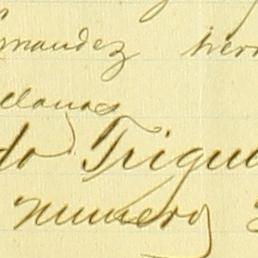 rnandez
llanos
do Trigue
Numero